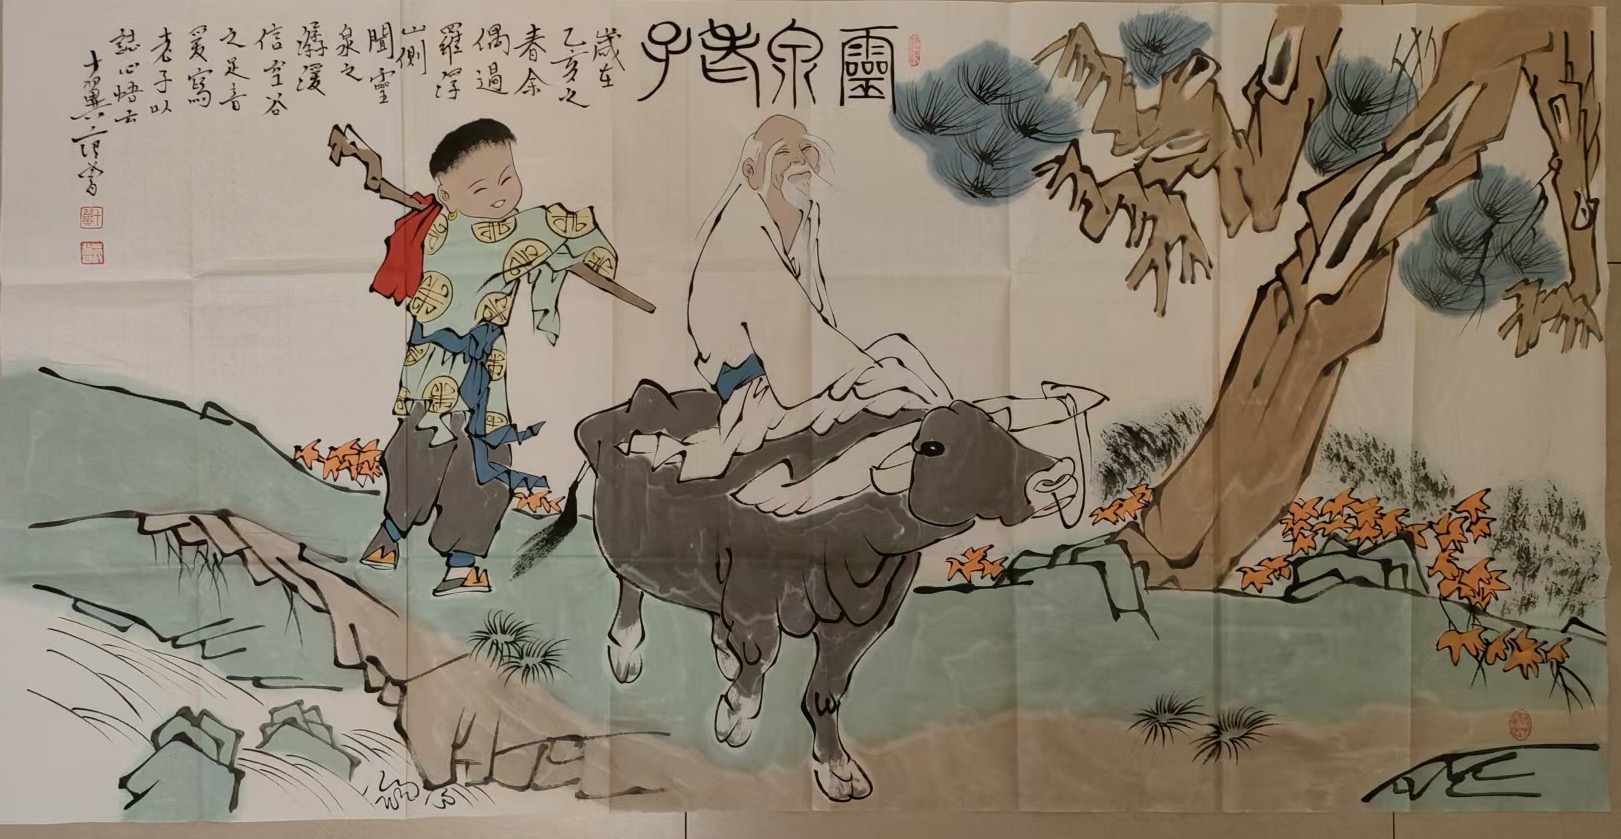 靈泉老子
歲在
乙亥之
春余
偶過
羅浮
山側
聞靈
泉之
潺湲
信空谷
之足音
爰寫
老子以
誌心悟云
十翼范曾
十翼